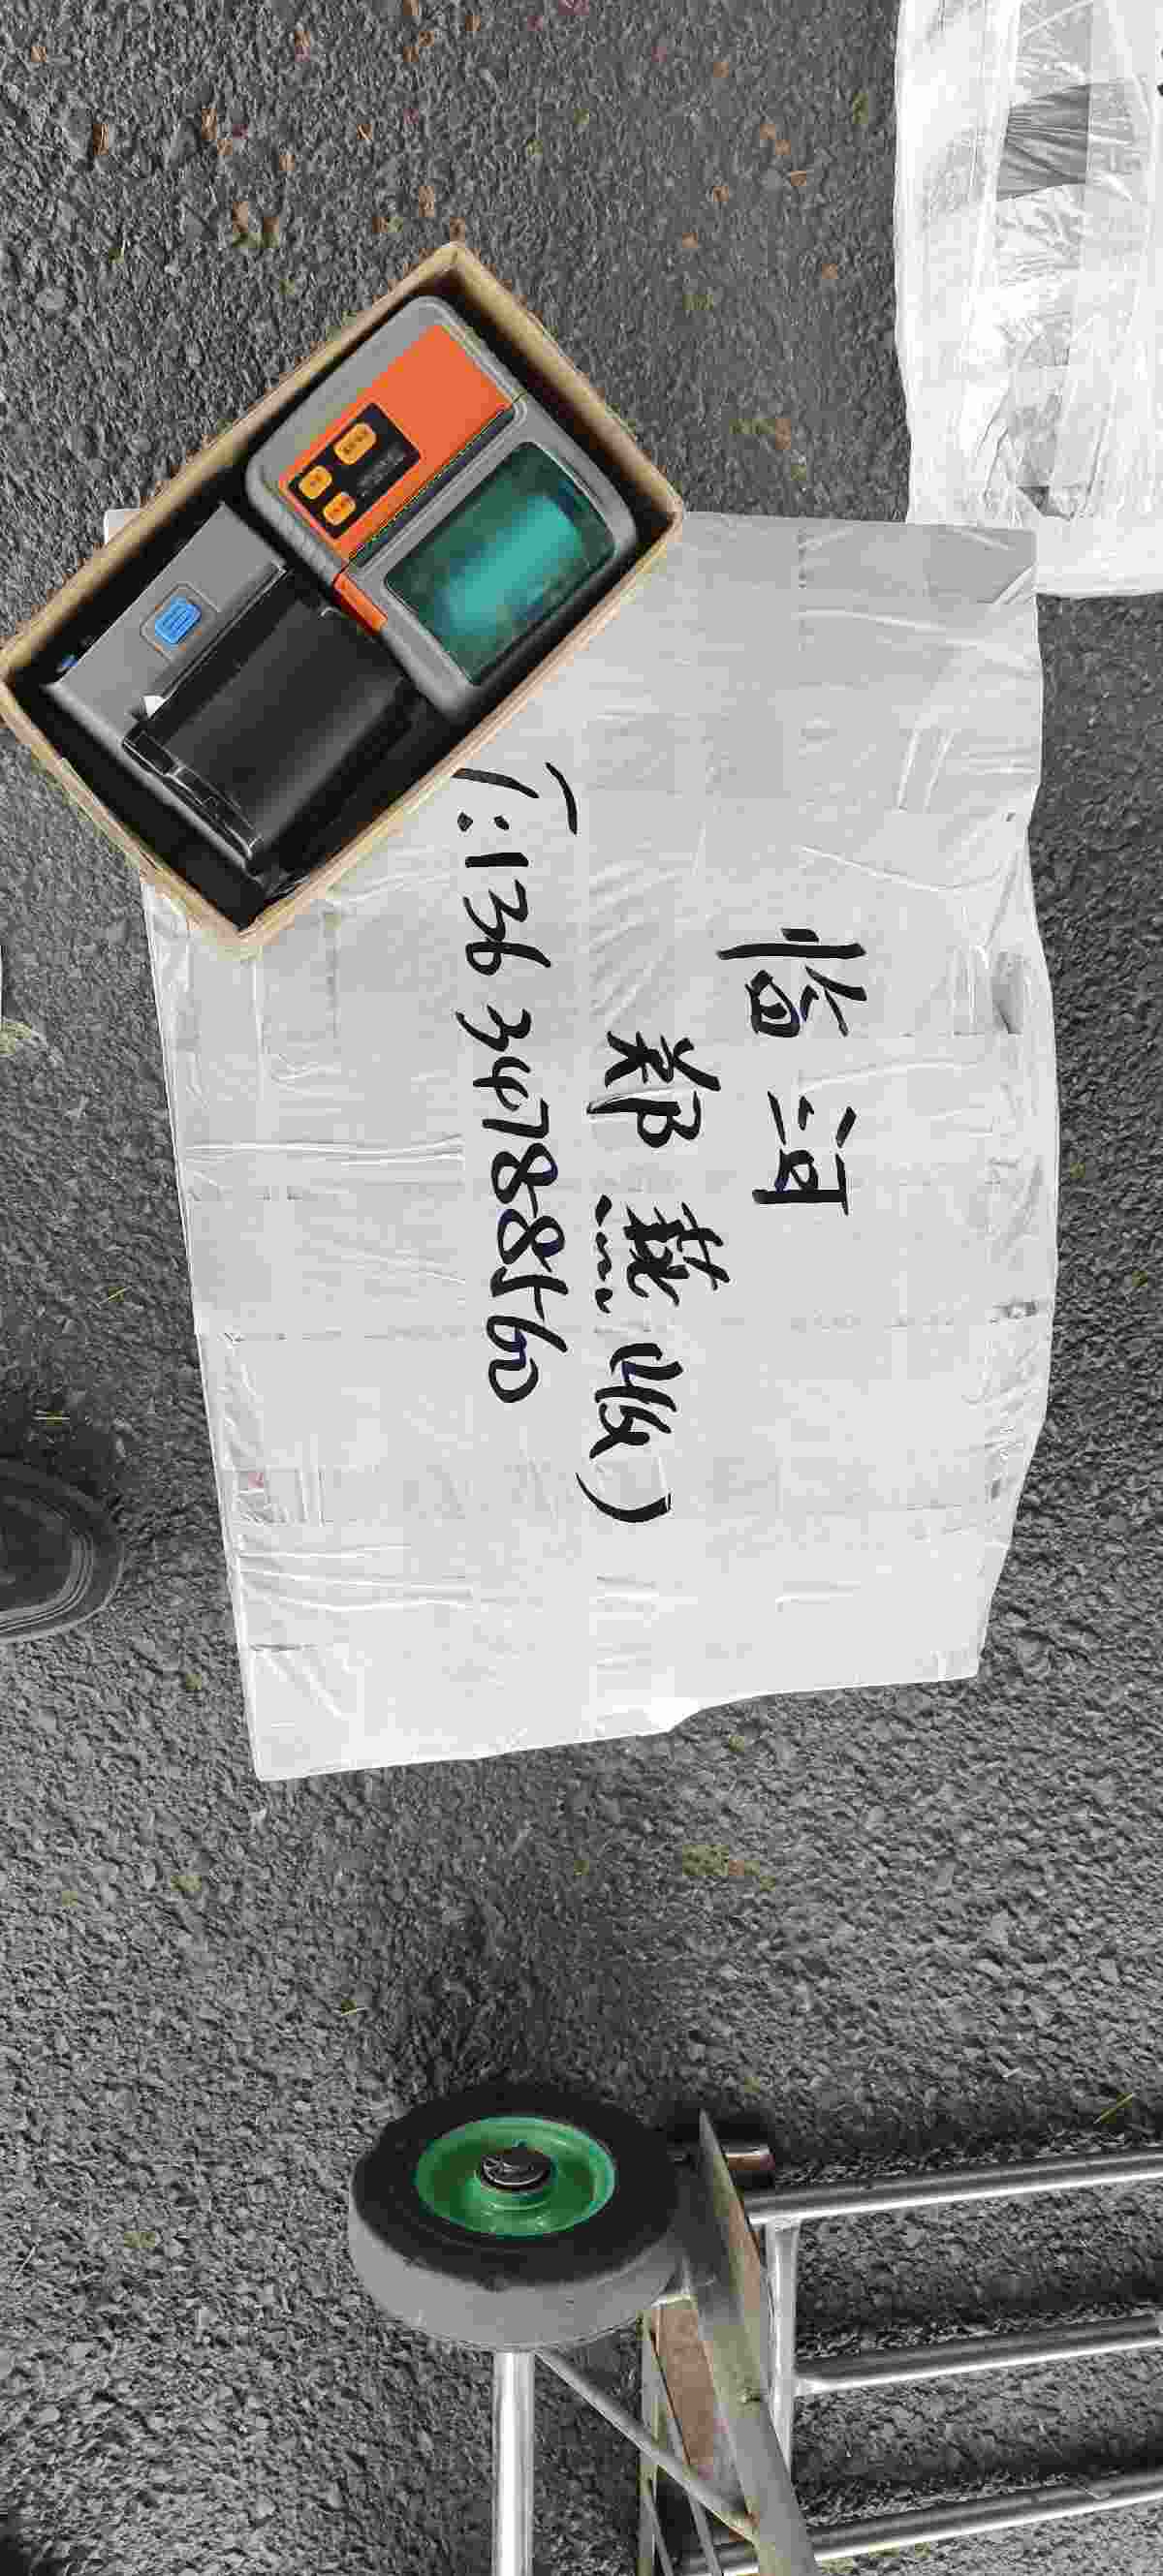 临河
(郑燕收)
T:136 34788560